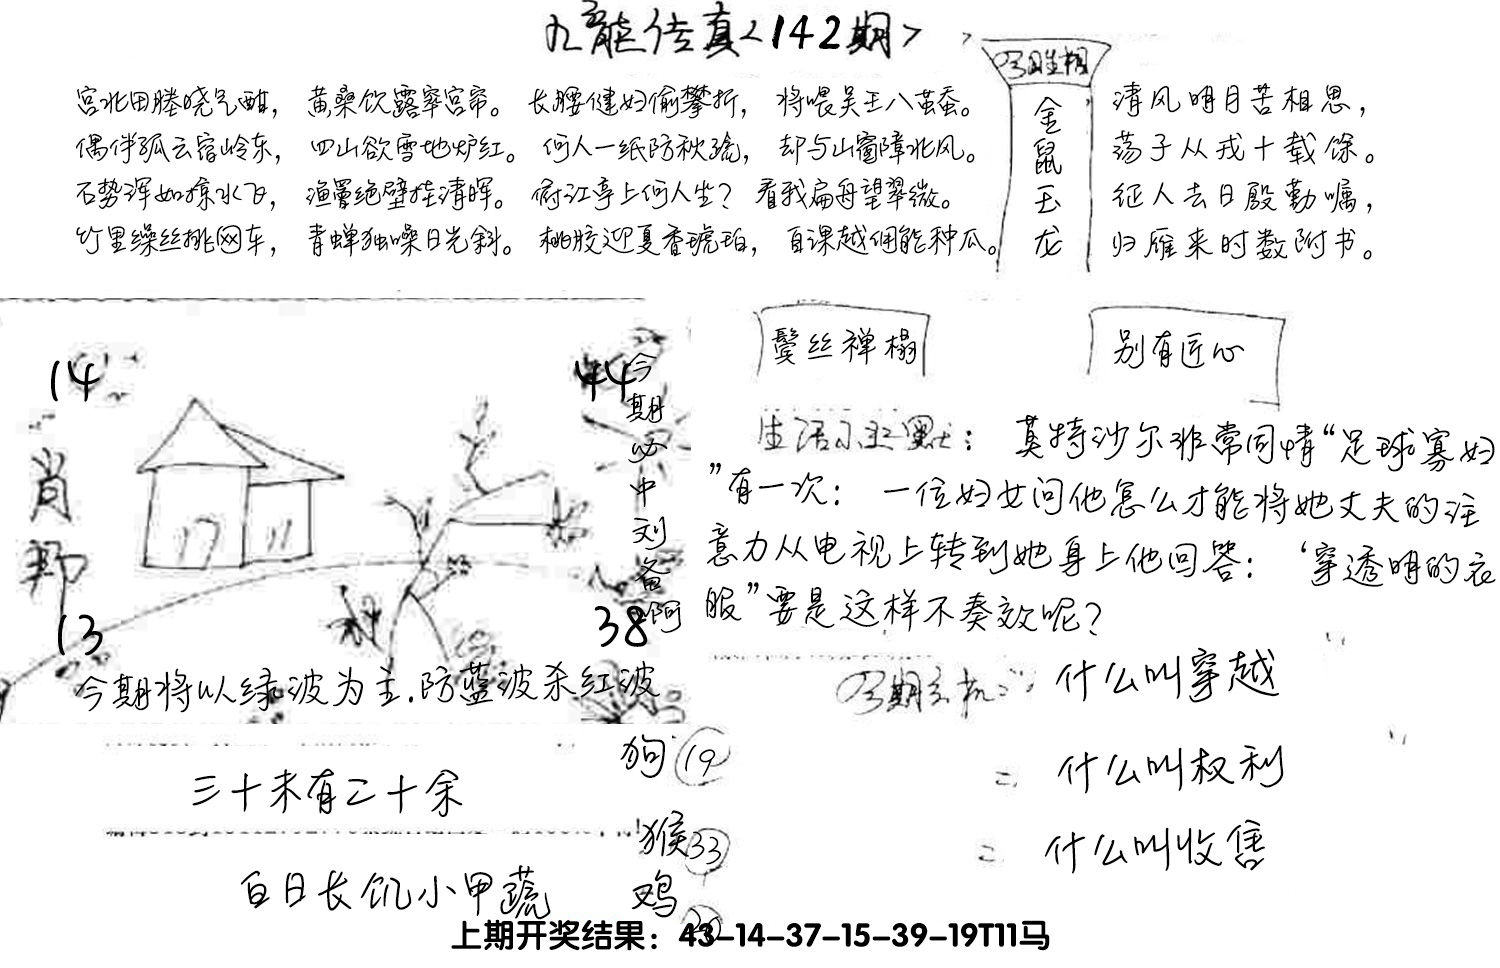 九龙传真<142期>
宫北田塍晓气酣，黄桑饮露窣宫帘。长腰健妇偷攀折，将喂吴王八茧蚕。
偶伴孤云宿岭东，四山欲雪地炉红。何人一纸防秋疏，却与山窗障北风。
石势浑如掠水飞，渔罾绝壁挂清晖。俯江亭上何人坐？看我扁舟望翠微。
竹里缲丝挑网车，青蝉独噪日光斜。桃胶迎夏香琥珀，自课越佣能种瓜。
今期生相
金鼠玉龙
清风明月苦相思，
荡子从戎十载馀。
征人去日殷勤嘱，
归雁来时数附书。
14
44
肖
13
38
今期必中刘备啊
今期将以绿波为主.防蓝波杀红波
鬓丝禅榻
别有匠心
生活小幽默：莫特沙尔非常同情“足球寡妇
”有一次：一位妇女问他怎么才能将她丈夫的注
意力从电视上转到她身上他回答：‘穿透明的衣
服”要是这样不奏效呢？
今期玄机：什么叫穿越
=什么叫权利
=什么叫收售
三十未有二十余
白日长饥小甲蔬
狗 19
猴 33
鸡
上期开奖结果：43-14-37-15-39-19T11马